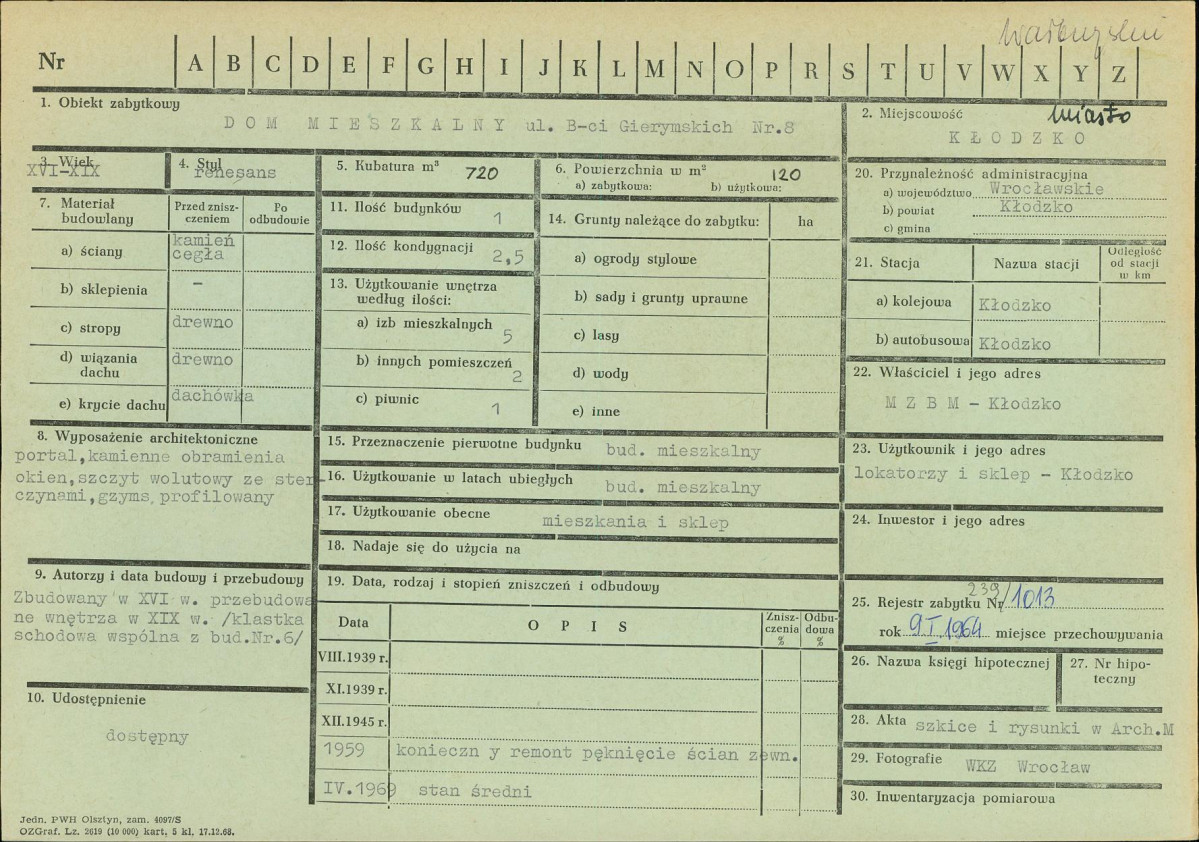 wałbrzyskie
Nr A B C D E F G H I J K L M N O P R S T U V W X Y Z
1. Obiekt zabytkowy
DOM MIESZKALNY ul. B-ci Gierymskich Nr.8
2. Miejscowość miasto
KŁODZKO
3. Wiek
XVI-XIX
4. Styl
renesans
5. Kubatura m³ 720
6. Powierzchnia w m² 120
a) zabytkowa: b) użytkowa:
7. Materiał budowlany
Przed zniszczeniem
Po odbudowie
a) ściany kamień cegła
b) sklepienia -
c) stropy drewno
d) wiązania dachu drewno
e) krycie dachu dachówka
8. Wyposażenie architektoniczne
portal,kamienne obramienia
okien,szczyt wolutowy ze ster
czynami,gzyms profilowany
9. Autorzy i data budowy i przebudowy
Zbudowany w XVI w. przebudowa
ne wnętrza w XIX w. /klastka
schodowa wspólna z bud.Nr.6/
10. Udostępnienie
dostępny
11. Ilość budynków 1
12. Ilość kondygnacji 2,5
13. Użytkowanie wnętrza
według ilości:
a) izb mieszkalnych 5
b) innych pomieszczeń 2
c) piwnic 1
14. Grunty należące do zabytku: ha
a) ogrody stylowe
b) sady i grunty uprawne
c) lasy
d) wody
e) inne
15. Przeznaczenie pierwotne budynku bud. mieszkalny
16. Użytkowanie w latach ubiegłych bud. mieszkalny
17. Użytkowanie obecne mieszkania i sklep
18. Nadaje się do użycia na
19. Data, rodzaj i stopień zniszczeń i odbudowy
Data OPIS Zniszczenia % Odbudowa %
VIII.1939 r.
XI.1939 r.
XII.1945 r.
1959 konieczn y remont pęknięcie ścian zewn.
IV.1969 stan średni
20. Przynależność administracyjna
a) województwo Wrocławskie
b) powiat Kłodzko
c) gmina
21. Stacja Nazwa stacji Odległość od stacji w km
a) kolejowa Kłodzko
b) autobusowa Kłodzko
22. Właściciel i jego adres
M Z B M - Kłodzko
23. Użytkownik i jego adres
lokatorzy i sklep - Kłodzko
24. Inwestor i jego adres
25. Rejestr zabytku Nr 239/1013
rok 9 I 1964 miejsce przechowywania
26. Nazwa księgi hipotecznej
27. Nr hipoteczny
28. Akta szkice i rysunki w Arch.M
29. Fotografie WKZ Wrocław
30. Inwentaryzacja pomiarowa
Jedn. PWH Olsztyn, zam. 4097/S
OZGraf. Lz. 2619 (10 000) kart, 5 kl, 17.12.68.